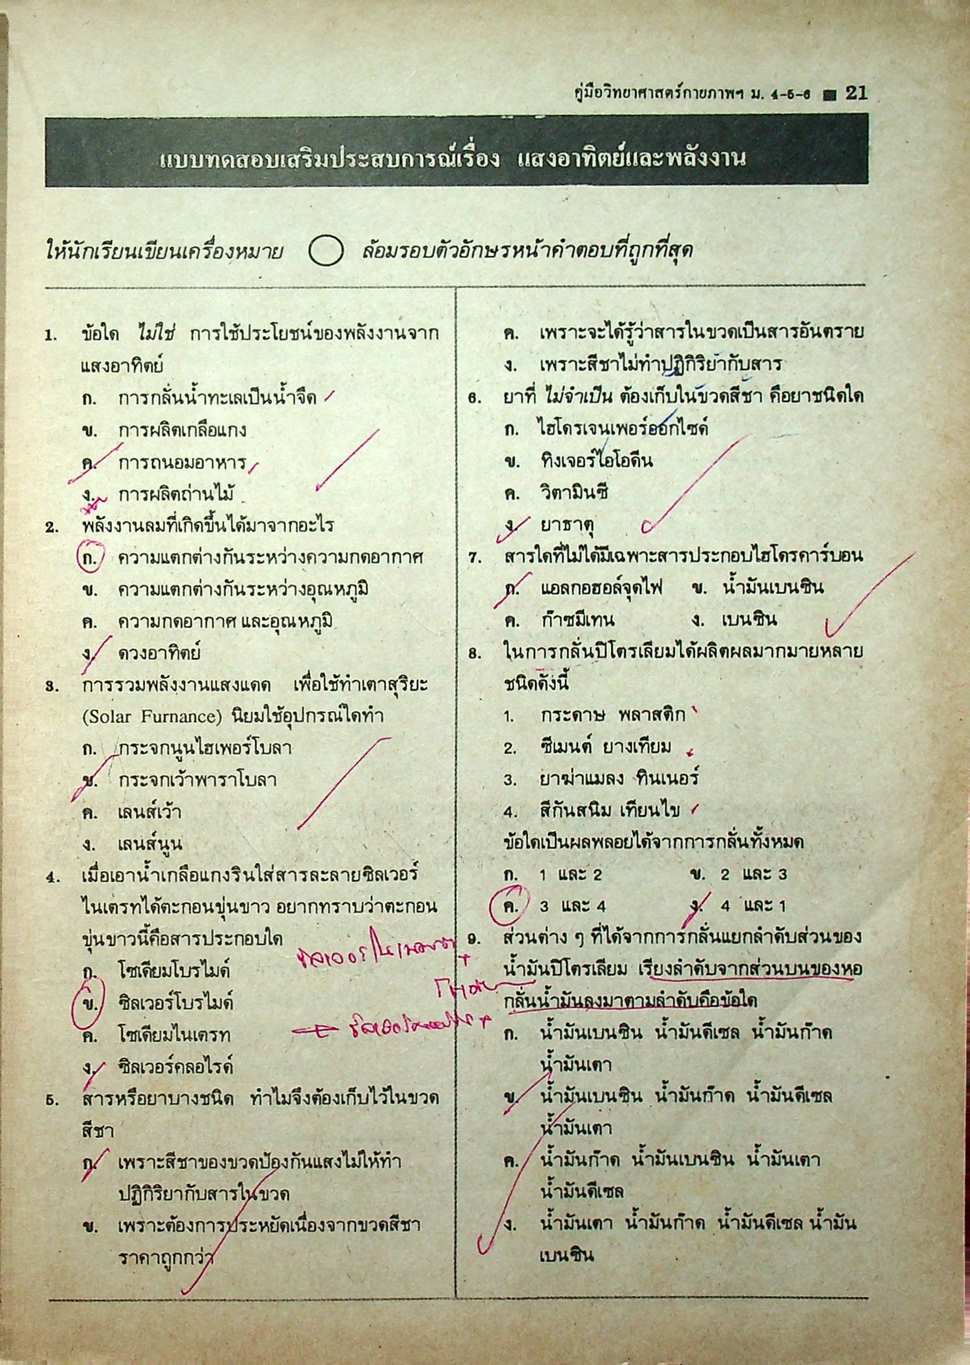 คู่มือวิทยาศาสตร์กายภาพฯ ม. 4-5-6 ■ 21
แบบทดสอบเสริมประสบการณ์เรื่อง แสงอาทิตย์และพลังงาน
ให้นักเรียนเขียนเครื่องหมาย ◯ ล้อมรอบตัวอักษรหน้าคำตอบที่ถูกที่สุด
1. ข้อใด ไม่ใช่ การใช้ประโยชน์ของพลังงานจาก
แสงอาทิตย์
ก. การกลั่นน้ำทะเลเป็นน้ำจืด
ข. การผลิตเกลือแกง
ค. การถนอมอาหาร
ง. การผลิตถ่านไม้
2. พลังงานลมที่เกิดขึ้นได้มาจากอะไร
ก. ความแตกต่างกันระหว่างความกดอากาศ
ข. ความแตกต่างกันระหว่างอุณหภูมิ
ค. ความกดอากาศ และอุณหภูมิ
ง. ดวงอาทิตย์
3. การรวมพลังงานแสงแดด เพื่อใช้ทำเตาสุริยะ
(Solar Furnance) นิยมใช้อุปกรณ์ใดทำ
ก. กระจกนูนไฮเพอร์โบลา
ข. กระจกเว้าพาราโบลา
ค. เลนส์เว้า
ง. เลนส์นูน
4. เมื่อเอาน้ำเกลือแกงรินใส่สารละลายซิลเวอร์
ไนเตรทได้ตะกอนขุ่นขาว อยากทราบว่าตะกอน
ขุ่นขาวนี้คือสารประกอบใด
ก. โซเดียมโบรไมด์
ข. ซิลเวอร์โบรไมด์
ค. โซเดียมไนเตรท
ง. ซิลเวอร์คลอไรด์
5. สารหรือยาบางชนิด ทำไมจึงต้องเก็บไว้ในขวด
สีชา
ก. เพราะสีชาของขวดป้องกันแสงไม่ให้ทำ
ปฏิกิริยากับสารในขวด
ข. เพราะต้องการประหยัดเนื่องจากขวดสีชา
ราคาถูกกว่า
ค. เพราะจะได้รู้ว่าสารในขวดเป็นสารอันตราย
ง. เพราะสีชาไม่ทำปฏิกิริยากับสาร
6. ยาที่ ไม่จำเป็น ต้องเก็บในขวดสีชา คือยาชนิดใด
ก. ไฮโดรเจนเพอร์ออกไซด์
ข. ทิงเจอร์ไอโอดีน
ค. วิตามินซี
ง. ยาธาตุ
7. สารใดที่ไม่ได้มีเฉพาะสารประกอบไฮโดรคาร์บอน
ก. แอลกอฮอล์จุดไฟ ข. น้ำมันเบนซิน
ค. ก๊าซมีเทน ง. เบนซิน
8. ในการกลั่นปิโตรเลียมได้ผลิตผลมากมายหลาย
ชนิดดังนี้
1. กระดาษ พลาสติก
2. ซีเมนต์ ยางเทียม
3. ยาฆ่าแมลง ทินเนอร์
4. สีกันสนิม เทียนไข
ข้อใดเป็นผลพลอยได้จากการกลั่นทั้งหมด
ก. 1 และ 2 ข. 2 และ 3
ค. 3 และ 4 ง. 4 และ 1
9. ส่วนต่าง ๆ ที่ได้จากการกลั่นแยกลำดับส่วนของ
น้ำมันปิโตรเลียม เรียงลำดับจากส่วนบนของหอ
กลั่นน้ำมันลงมาตามลำดับคือข้อใด
ก. น้ำมันเบนซิน น้ำมันดีเซล น้ำมันก๊าด
น้ำมันเตา
ข. น้ำมันเบนซิน น้ำมันก๊าด น้ำมันดีเซล
น้ำมันเตา
ค. น้ำมันก๊าด น้ำมันเบนซิน น้ำมันเตา
น้ำมันดีเซล
ง. น้ำมันเตา น้ำมันก๊าด น้ำมันดีเซล น้ำมัน
เบนซิน